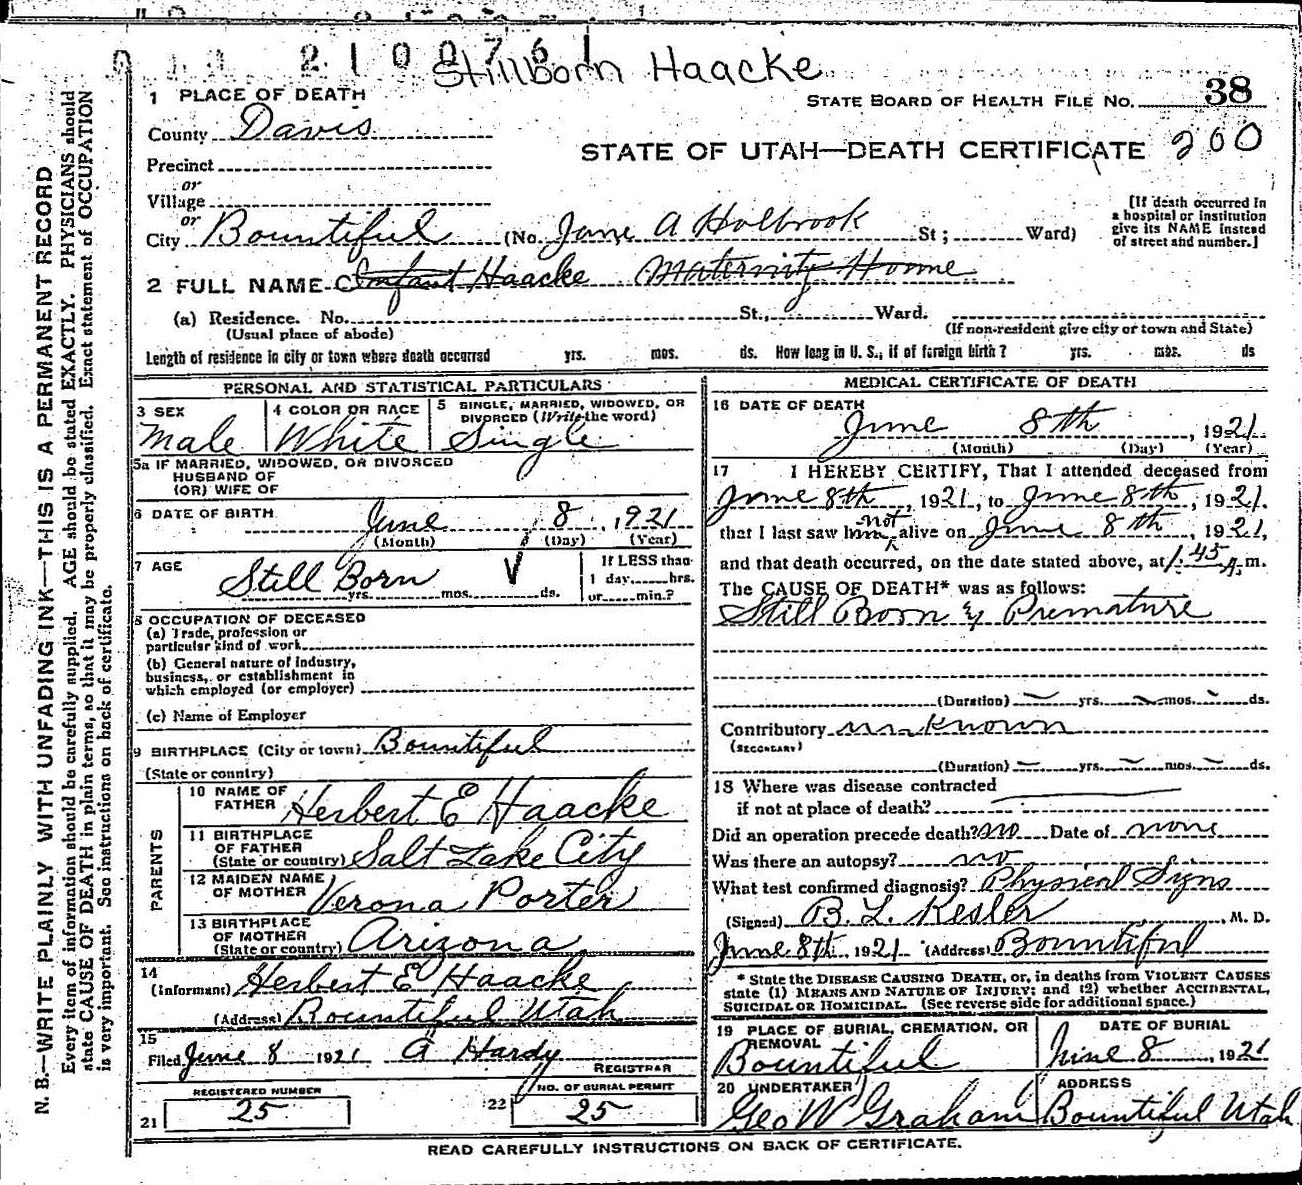 210076
Stillborn Haacke
1 PLACE OF DEATH
STATE BOARD OF HEALTH FILE NO. 38
County Davis
STATE OF UTAH—DEATH CERTIFICATE 200
Precinct
or
Village
or
City Bountiful (No. Jane A Holbrook St; Ward)
[If death occurred in a hospital or institution give its NAME instead of street and number.]
2 FULL NAME Infant Haacke Maternity Home
(a) Residence. No. St., Ward.
(Usual place of abode) (If non-resident give city or town and State)
Length of residence in city or town where death occurred yrs. mos. ds. How long in U. S., if of foreign birth? yrs. mos. ds
PERSONAL AND STATISTICAL PARTICULARS
3 SEX Male
4 COLOR OR RACE White
5 SINGLE, MARRIED, WIDOWED, OR DIVORCED (Write the word) Single
5a IF MARRIED, WIDOWED, OR DIVORCED
HUSBAND OF
(OR) WIFE OF
6 DATE OF BIRTH June 8, 1921
(Month) (Day) (Year)
7 AGE Still Born yrs. mos. ds.
If LESS than 1 day hrs. or min.?
8 OCCUPATION OF DECEASED
(a) Trade, profession or
particular kind of work
(b) General nature of industry,
business, or establishment in
which employed (or employer)
(c) Name of Employer
9 BIRTHPLACE (City or town) Bountiful
(State or country)
PARENTS
10 NAME OF FATHER Herbert E Haacke
11 BIRTHPLACE OF FATHER (State or country) Salt Lake City
12 MAIDEN NAME OF MOTHER Verona Porter
13 BIRTHPLACE OF MOTHER (State or country) Arizona
14 (Informant) Herbert E Haacke
(Address) Bountiful Utah
15 Filed June 8 1921 A Hardy
REGISTRAR
REGISTERED NUMBER
21 25
NO. OF BURIAL PERMIT
22 25
MEDICAL CERTIFICATE OF DEATH
16 DATE OF DEATH
June 8th, 1921
(Month) (Day) (Year)
17 I HEREBY CERTIFY, That I attended deceased from
June 8th, 1921, to June 8th, 1921.
that I last saw him not alive on June 8th, 1921,
and that death occurred, on the date stated above, at 1:45 A. m.
The CAUSE OF DEATH* was as follows:
Still Born & Premature
(Duration) yrs. mos. ds.
Contributory unknown
(SECONDARY)
(Duration) yrs. mos. ds.
18 Where was disease contracted
if not at place of death?
Did an operation precede death? no Date of none
Was there an autopsy? no
What test confirmed diagnosis? Physical Signs
(Signed) B. L. Kesler, M. D.
June 8th 1921 (Address) Bountiful
* State the DISEASE CAUSING DEATH, or, in deaths from VIOLENT CAUSES
state (1) MEANS AND NATURE OF INJURY; and (2) whether ACCIDENTAL,
SUICIDAL OR HOMICIDAL. (See reverse side for additional space.)
19 PLACE OF BURIAL, CREMATION, OR REMOVAL DATE OF BURIAL
Bountiful June 8, 1921
20 UNDERTAKER ADDRESS
Geo W Graham Bountiful Utah
READ CAREFULLY INSTRUCTIONS ON BACK OF CERTIFICATE.
N. B.—WRITE PLAINLY WITH UNFADING INK—THIS IS A PERMANENT RECORD
Every item of information should be carefully supplied. AGE should be stated EXACTLY. PHYSICIANS should
state CAUSE OF DEATH in plain terms, so that it may be properly classified. Exact statement of OCCUPATION
is very important. See instructions on back of certificate.